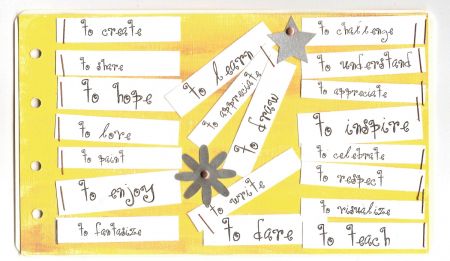 to create
to share
to hope
to love
to paint
to enjoy
to fantasize
to learn
to appreciate
to
to write
to dare
to challenge
to understand
to appreciate
to inspire
to celebrate
to respect
to visualize
to teach